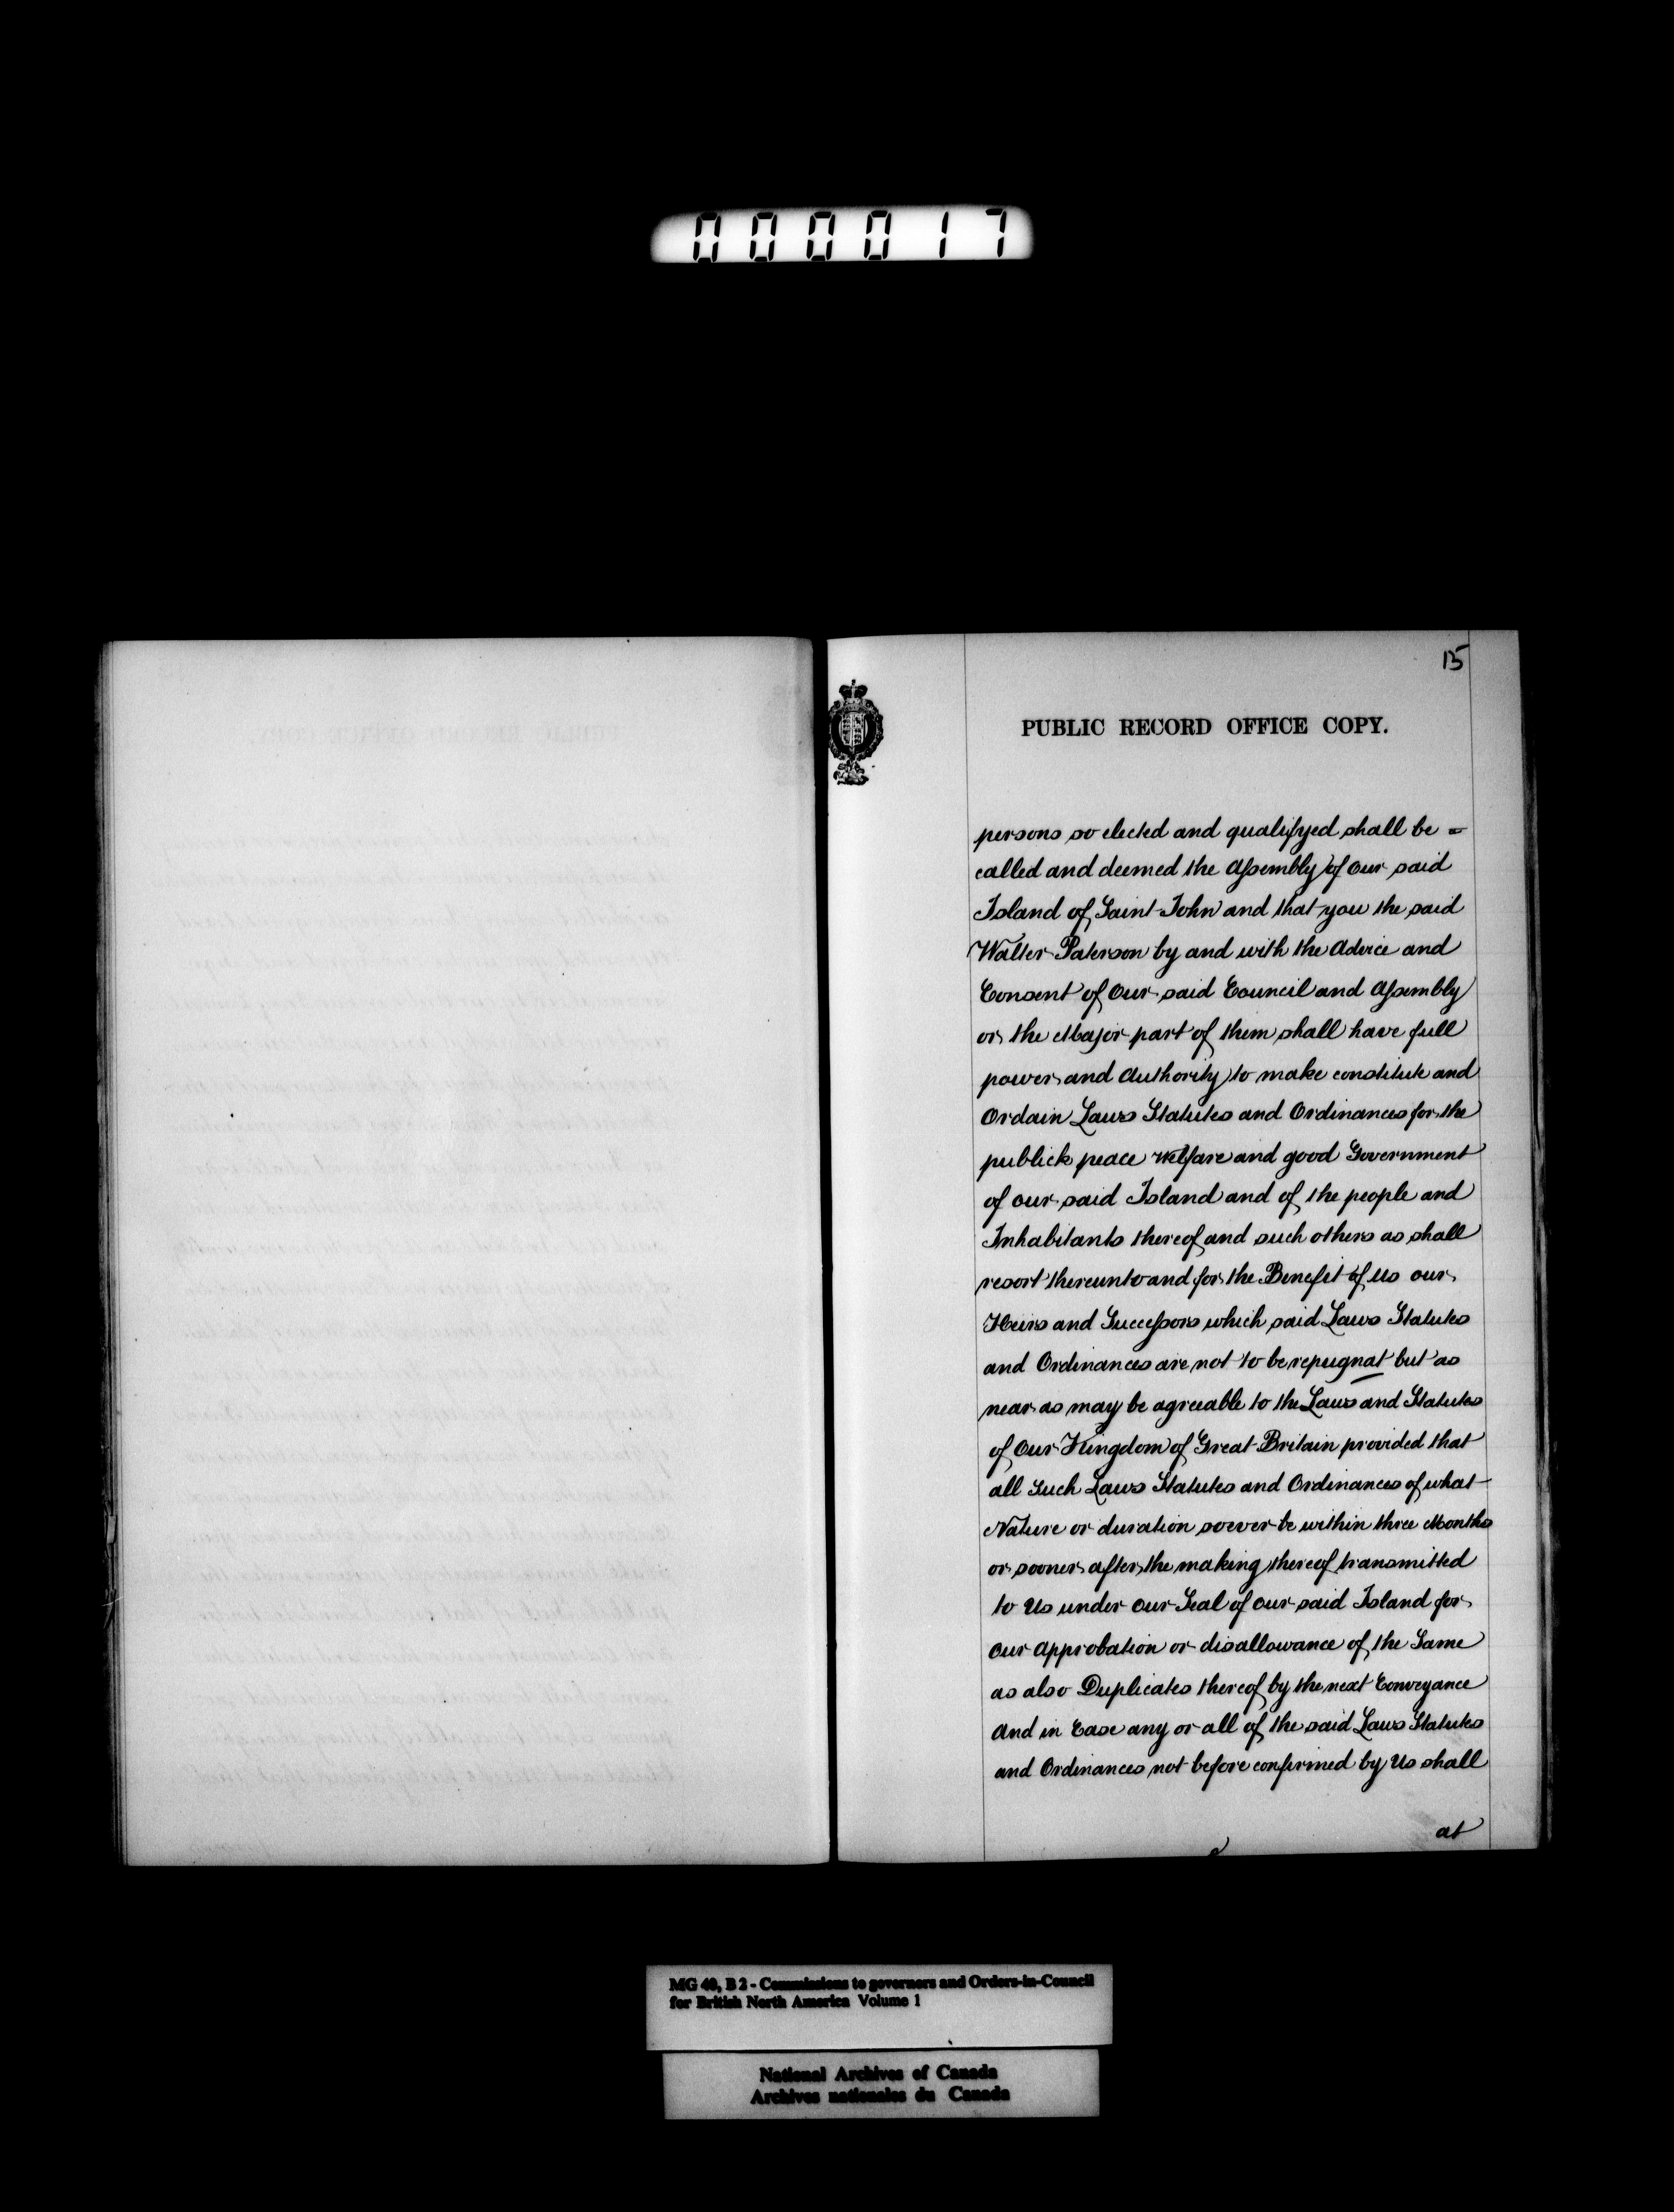 000017
15
PUBLIC RECORD OFFICE COPY.
persons so elected and qualifyed shall be =
called and deemed the Assembly of our said
Island of Saint John and that you the said
Walter Paterson by and with the Advice and
Consent of Our said Council and Assembly
or the Major part of them shall have full
power and Authority to make constitute and
Ordain Laws Statutes and Ordinances for the
publick peace Welfare and good Government
of our said Island and of the people and
Inhabitants thereof and such others as shall
resort thereunto and for the Benefit of Us our
Heirs and Successors which said Laws Statutes
and Ordinances are not to be repugnat but as
near as may be agreeable to the Laws and Statutes
of Our Kingdom of Great Britain provided that
all Such Laws Statutes and Ordinances of what
Nature or duration soever be within three Months
or sooner after the making thereof transmitted
to Us under Our Seal of our said Island for
Our Approbation or disallowance of the Same
as also Duplicates thereof by the next Conveyance
And in Case any or all of the said Laws Statutes
and Ordinances not before confirmed by Us shall
at
MG 40, B 2 - Commissions to governors and Orders-in-Council
for British North America Volume 1
National Archives of Canada
Archives nationales du Canada